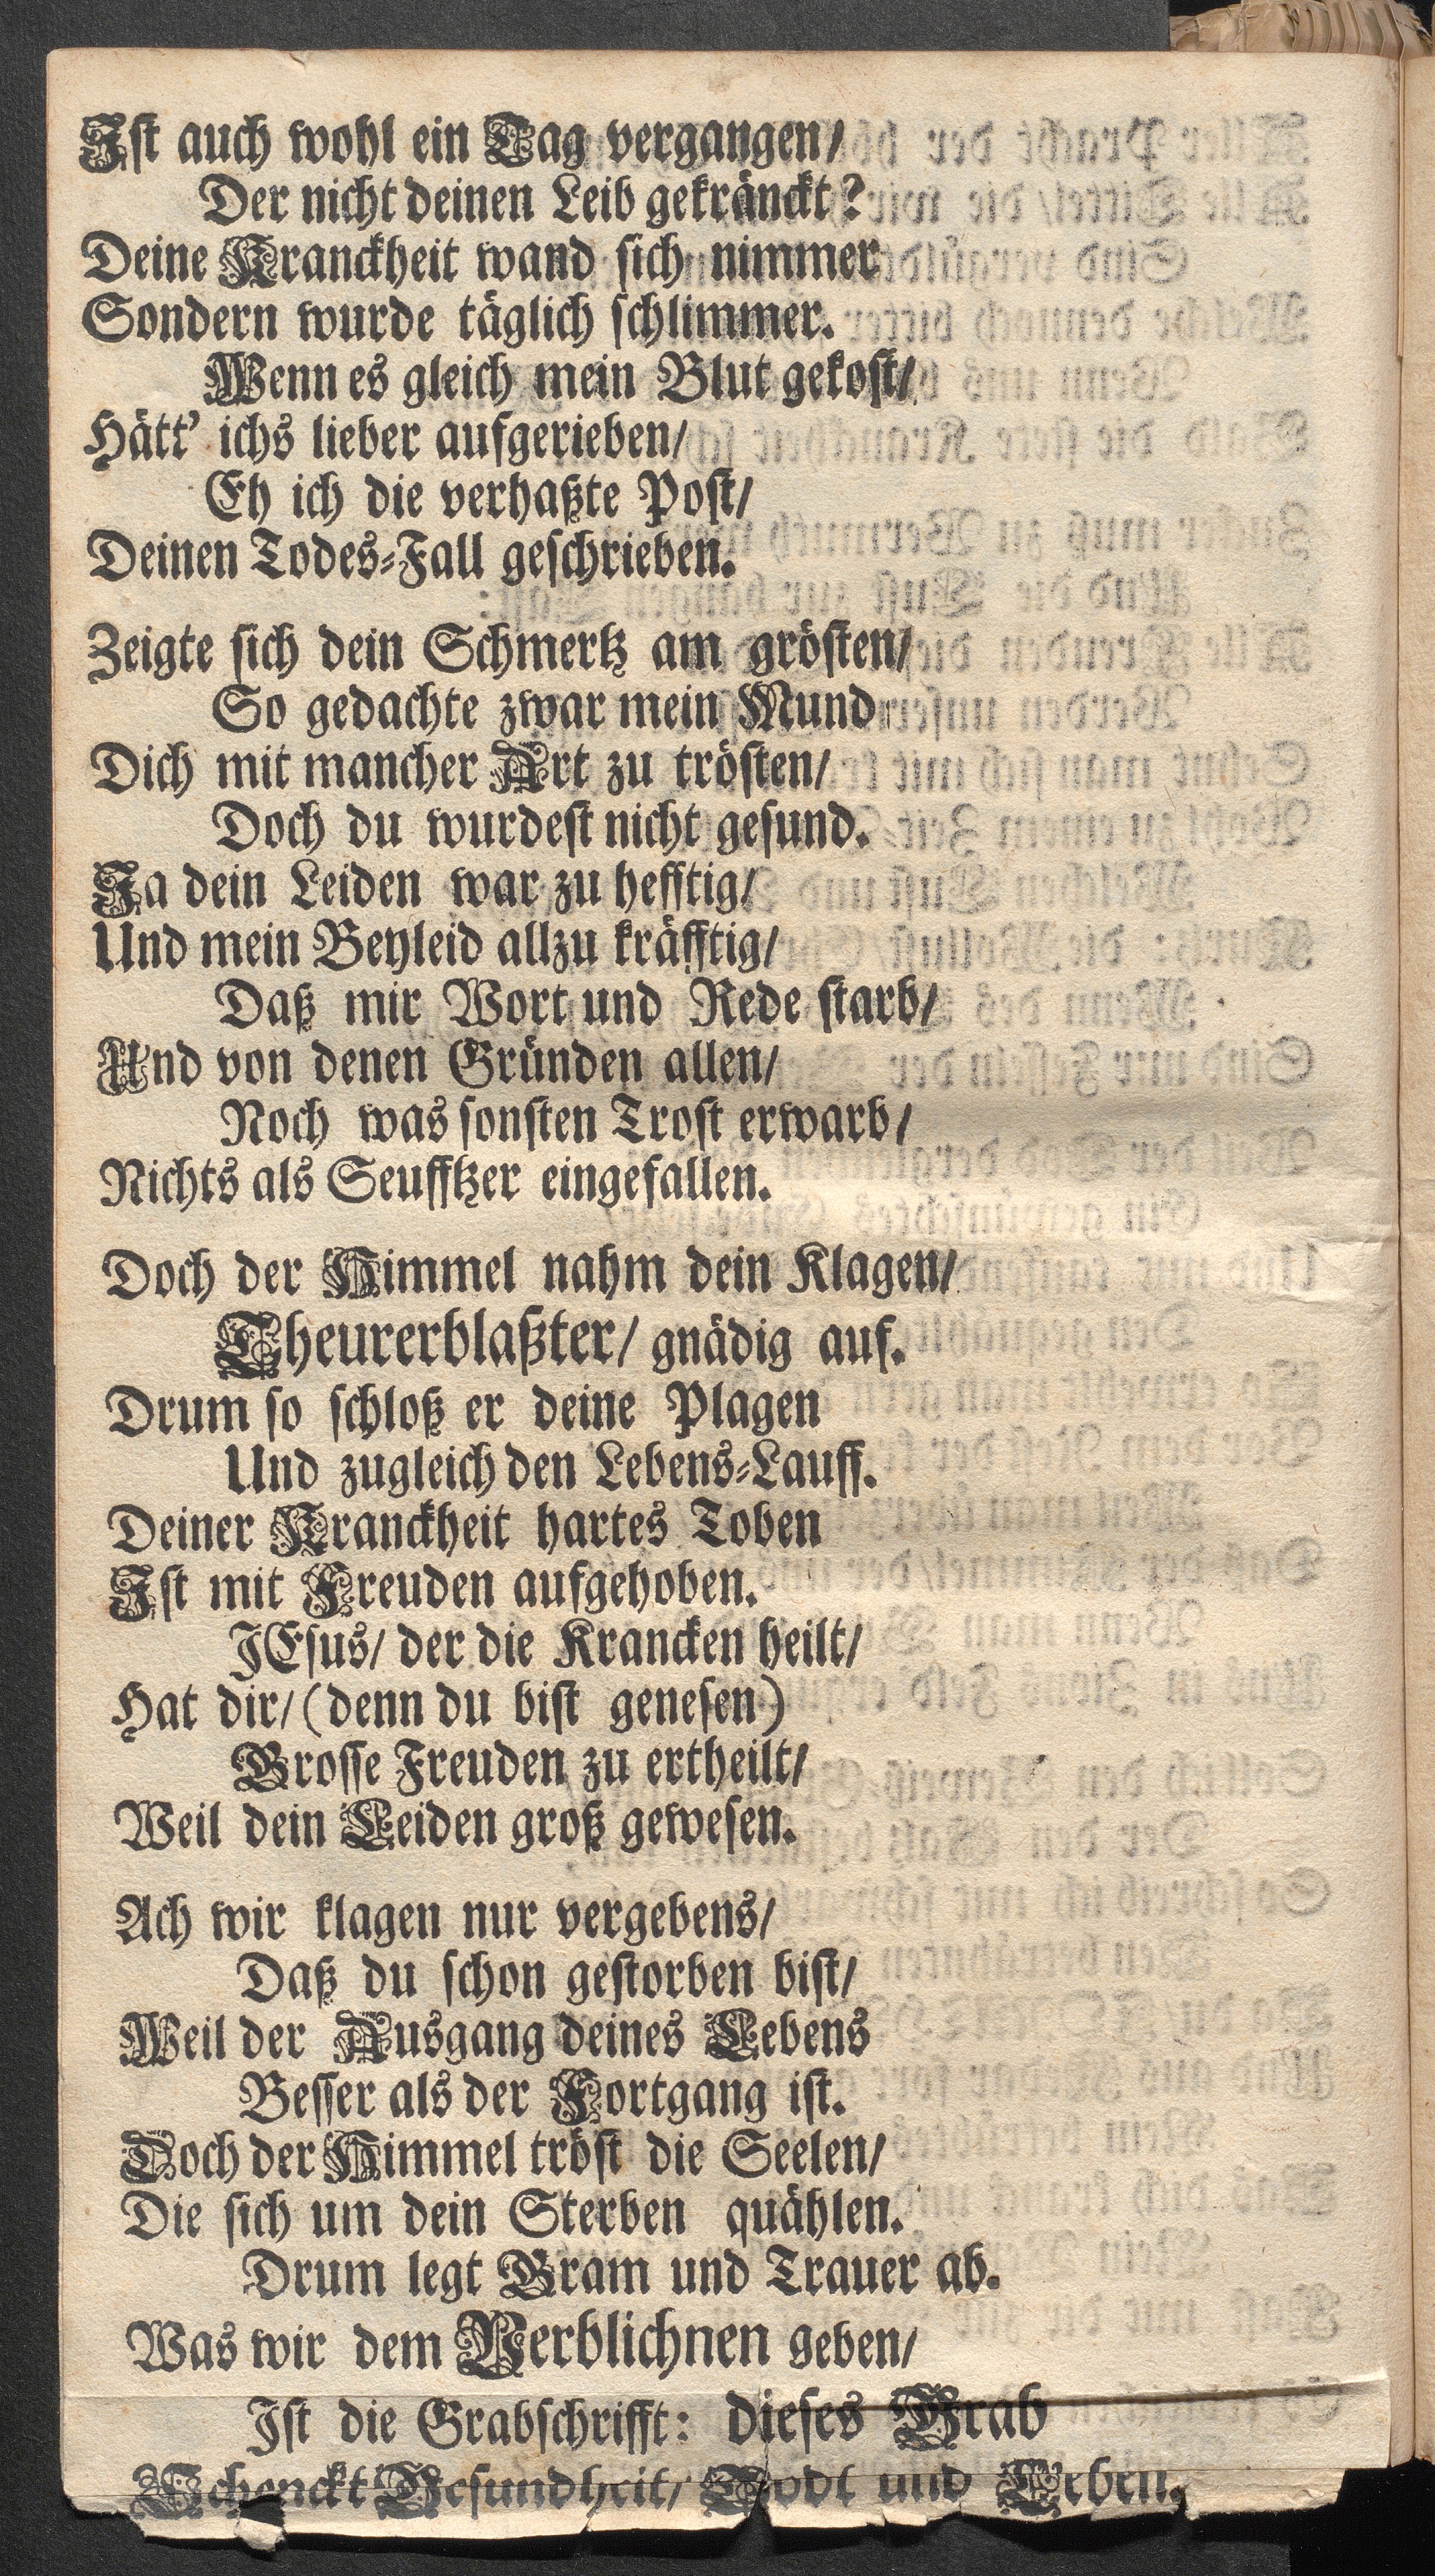 Ist auch wohl ein Tag vergangen/
Der nicht deinen Leib gekränckt?
Deine Kranckheit wand sich nimmer
Sondern wurde täglich schlimmer.
Wenn es gleich mein Blut gekost/
Hätt' ichs lieber aufgerieben/
Eh ich die verhaßte Post/
Deinen Todes-Fall geschrieben.
Zeigte sich dein Schmertz am grösten/
So gedachte zwar mein Mund
Dich mit mancher Art zu trösten/
Doch du wurdest nicht gesund.
Ja dein Leiden war zu hefftig/
Und mein Beyleid allzu kräfftig/
Daß mir Wort und Rede starb/
Und von denen Gründen allen/
Noch was sonsten Trost erwarb/
Nichts als Seufftzer eingefallen.
Doch der Himmel nahm dein Klagen/
Theurerblaßter/ gnädig auf.
Drum so schloß er deine Plagen
Und zugleich den Lebens-Lauff.
Deiner Kranckheit hartes Toben
Ist mit Freuden aufgehoben.
JEsus/ der die Krancken heilt/
Hat dir/ (denn du bist genesen)
Grosse Freuden zu ertheilt/
Weil dein Leiden groß gewesen.
Ach wir klagen nur vergebens/
Daß du schon gestorben bist/
Weil der Ausgang deines Lebens
Besser als der Fortgang ist.
Doch der Himmel tröst die Seelen/
Die sich um dein Sterben quählen.
Drum legt Gram und Trauer ab.
Was wir dem Verblichnen geben/
Ist die Grabschrifft: dieses Grab
Schenckt Gesundheit/ Todt und Leben.